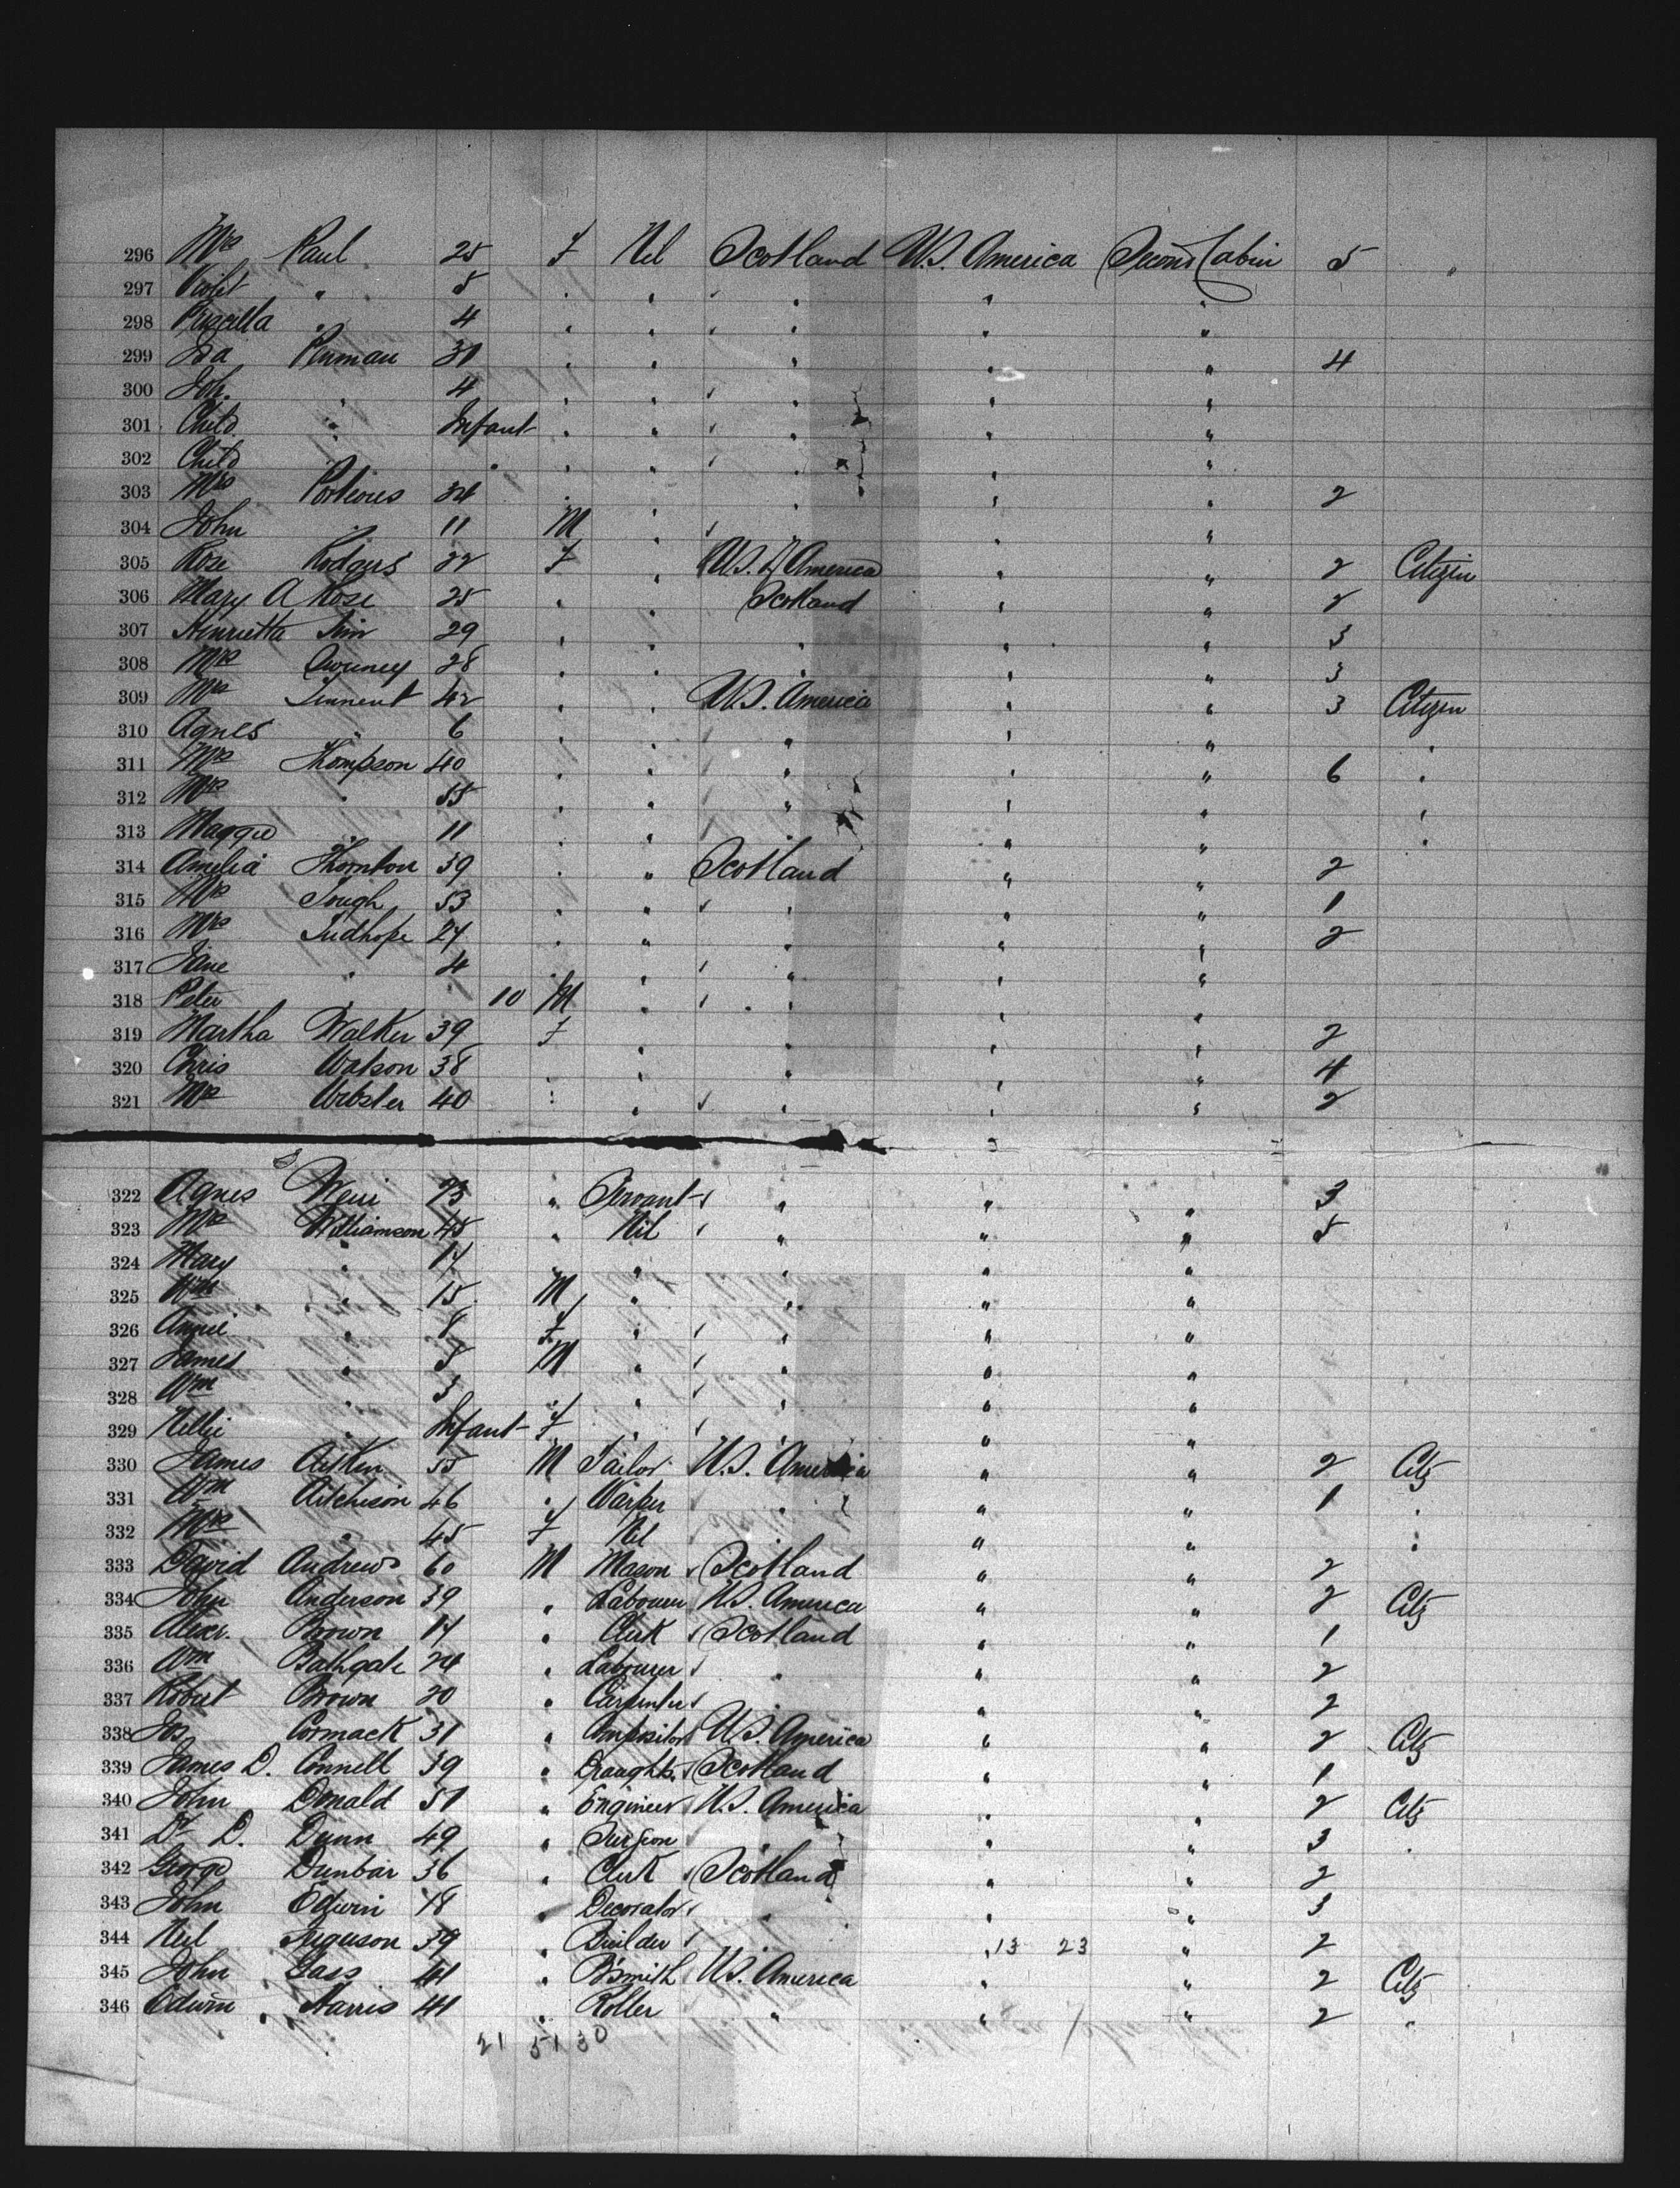 296 Mrs Paul 25 F Nil Scotland U.S. America Second Cabin 5 "
297 Violet " 5 " " " " "
298 Priscilla " 4 " " " " "
299 Ida Penman 31 " " " " " 4
300 Joh. " 4 " " " " "
301 Child " Infant " " " " "
302 Child " " " " " " "
303 Mrs Porteous 34 " " " " " 2
304 John " 11 M " " " "
305 Rose Rodgers 22 F " U.S. America " " 2 Citizen
306 Mary A Rose 25 " " Scotland " " 2
307 Henrietta Sim 29 " " " " " 3
308 Mrs 28 " " " " " 3
309 Mrs Tennent 42 " " U.S. America " " 3 Citizen
310 Agnes " 6 " " " " " "
311 Mrs Thompson 40 " " " " " 6 "
312 " 55 " " " " " "
313 Maggie " 11 " " " " " "
314 Amelia Thornton 39 " " Scotland " " 2
315 Mrs Tough 53 " " " " " 1
316 Mrs Tudhope 27 " " " " " 2
317 Jane " 4 " " " " "
318 Peter " " 10 M " " " "
319 Martha Walker 39 F " " " " 2
320 Chris Watson 38 " " " " 4
321 Mrs Webster 40 " " " " " 2
322 Agnes Weir 23 " Servant " " " 3
323 Mrs Williamson 45 " Nil " " " 5
324 Mary " 17 " " " " "
325 Wm " 15 M " " " "
326 Annie " 8 F " " " "
327 James " 5 M " " " "
328 Wm " 3 " " " " "
329 Nellie " Infant F " " " "
330 James Aitken 55 M Tailor U.S. America " " 2 Citz
331 Wm Aitchison 46 " Warper " " " 1 "
332 Mrs " 45 F Nil " " "
333 David Andrews 60 M Mason Scotland " " 2
334 John Anderson 39 " Labourer U.S. America " " 2 Citz
335 Alexr. Brown 17 " Clerk Scotland " " 1
336 Wm Bathgate 24 " Labourer " " " 2
337 Robert Brown 20 " Carpenter " " " 2
338 Jos Cormack 31 " Compositor U.S. America " " 2 Citz
339 James D. Connell 39 " Draughts. Scotland " " 1
340 John Donald 51 " Engineer U.S. America " " 2 Citz
341 Dr D. Dunn 49 " Surgeon " " " 3 "
342 George Dunbar 36 " Clerk Scotland " " 2
343 John Edwin 18 " Decorator " " " 3
344 Neil Ferguson 39 " Builder " " 13 23 " 2
345 John Gass 41 " B'smith U.S. America " " 2 Citz
346 Edwin Harris 41 " Roller " " " 2 "
21 51 30